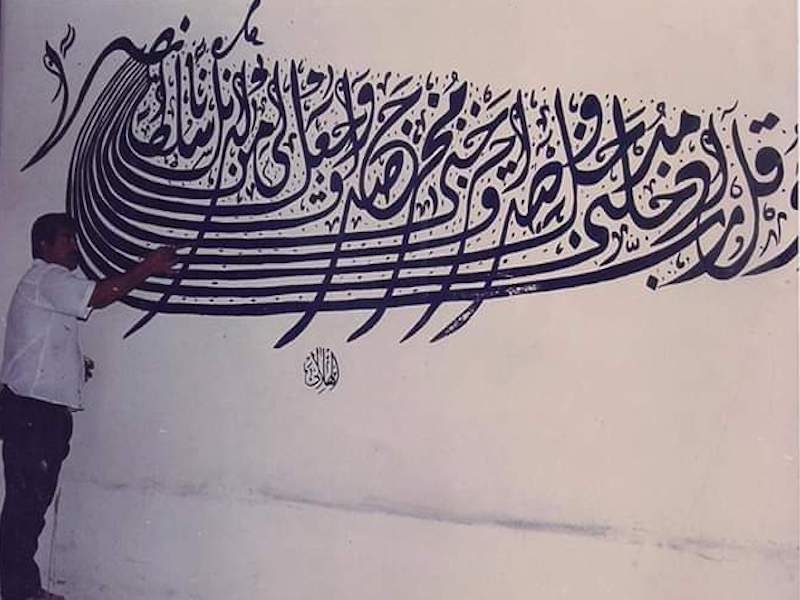 وقل رب ادخلني مدخل صدق واخرجني مخرج صدق واجعل لي من لدنك سلطانا نصيرا